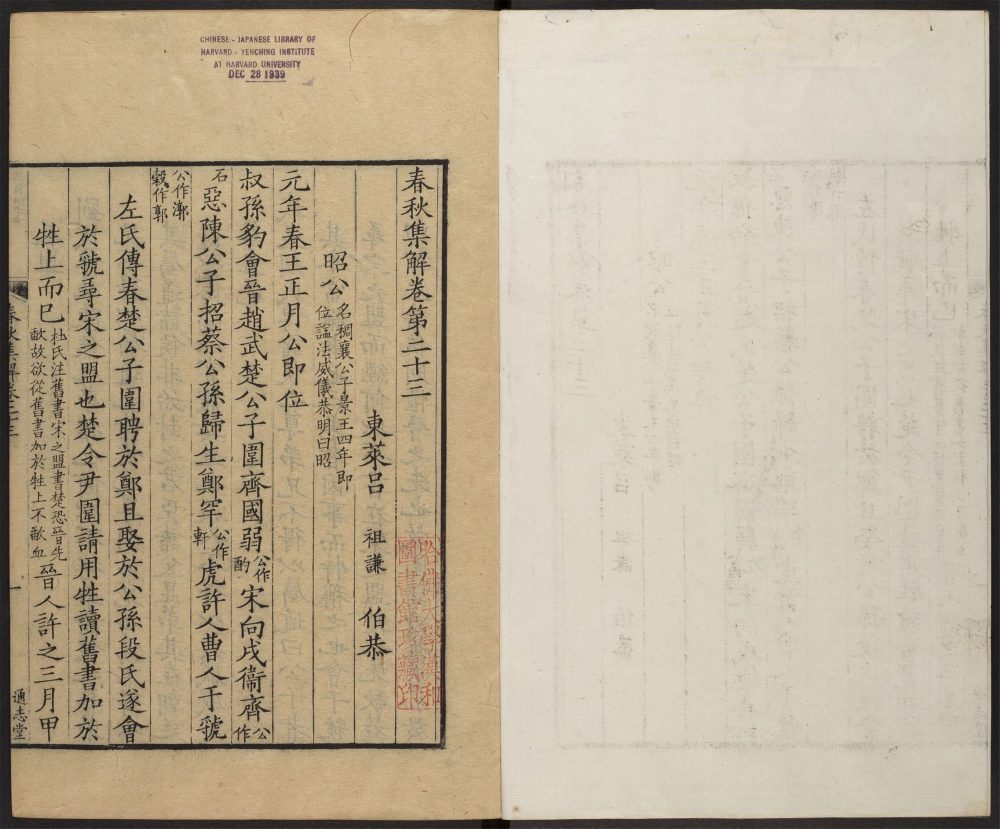 CHINESE - JAPANESE LIBRARY OF
HARVARD - YENCHING INSTITUTE
AT HARVARD UNIVERSITY
DEC 28 1939
春秋集解卷第二十三
東萊呂 祖謙 伯恭
哈佛大學漢和
圖書館珍藏印
昭公 名稠襄公子景王四年即
位謚法威儀恭明曰昭
元年春王正月公即位
叔孫豹會晉趙武楚公子圍齊國弱 公作
酌 宋向戌衞齊 公
作
石 惡陳公子招蔡公孫歸生鄭罕 公作
軒 虎許人曹人于虢
公作漷
穀作郭
左氏傳春楚公子圍聘於鄭且娶於公孫段氏遂會
於虢尋宋之盟也楚令尹圍請用牲讀舊書加於
牲上而已 杜氏注舊書宋之盟書楚恐晉先
歃故欲從舊書加於牲上不歃血 晉人許之三月甲
春秋集解卷二十三
一
通志堂